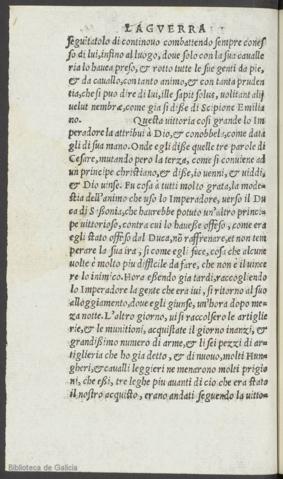 LA GVERRA
seguẽtatolo di continouo combattendo sempre cones
so di lui, insino al luogo, doue solo con la sua caualle
ria lo hauea preso, & rotto tutte le sue genti da pie,
& da cauallo, con tanto animo, & con tanta pruden
tia, che si puo dire di lui, ille sapit solus, uolitant alij
uelut nembræ, come gia si disse di Scipione Emilia
no.
Questa uittoria cosi grande lo Im
peradore la attribuì à Dio, & conobbela, come data
gli di sua mano. Onde egli disse quelle tre parole di
Cesare, mutando pero la terza, come si conuiene ad
un principe christiano, & disse, io uenni, & uiddi,
& Dio uinse. Fu cosa à tutti molto grata, la mode=
stia dell'animo che uso lo Imperadore, uerso il Du
ca di Sassonia, che haurebbe potuto un'altro princi=
pe uittorioso, contra cui lo hauesse offeso, come era
egli stato offeso dal Duca, nõ raffrenare, et non tem
perare la sua ira, si come egli fece, cosa che alcune
uolte è molto piu difficile da fare, che non è il uince
re lo inimico. Hora essendo gia tardi, raccogliendo
lo Imperadore la gente che era iui, si ritorno al suo
alloggiamento, doue egli giunse, un'hora dopo me=
za notte. L'altro giorno, ui si raccolsero le artiglie
rie, & le munitioni, acquistate il giorno inanzi, &
grandissimo numero di arme, & li sei pezzi di ar=
tiglieria che ho gia detto, & di nuouo, molti Hun=
gheri, & caualli leggieri ne menarono molti prigio
ni, che essi, tre leghe piu auanti di cio che era stato
il nostro acquisto, erano andati seguendo la uitto=
Biblioteca de Galicia